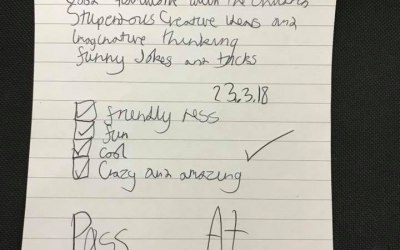 with the children's
Stupendous Creative ideas and
imaginative thinking
funny Jokes and tricks
23.3.18
friendly ness
fun
cool
Crazy and amazing
Pass A+